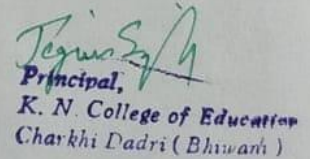 Principal,
K. N. College of Education
Charkhi Dadri ( Bhiwani )